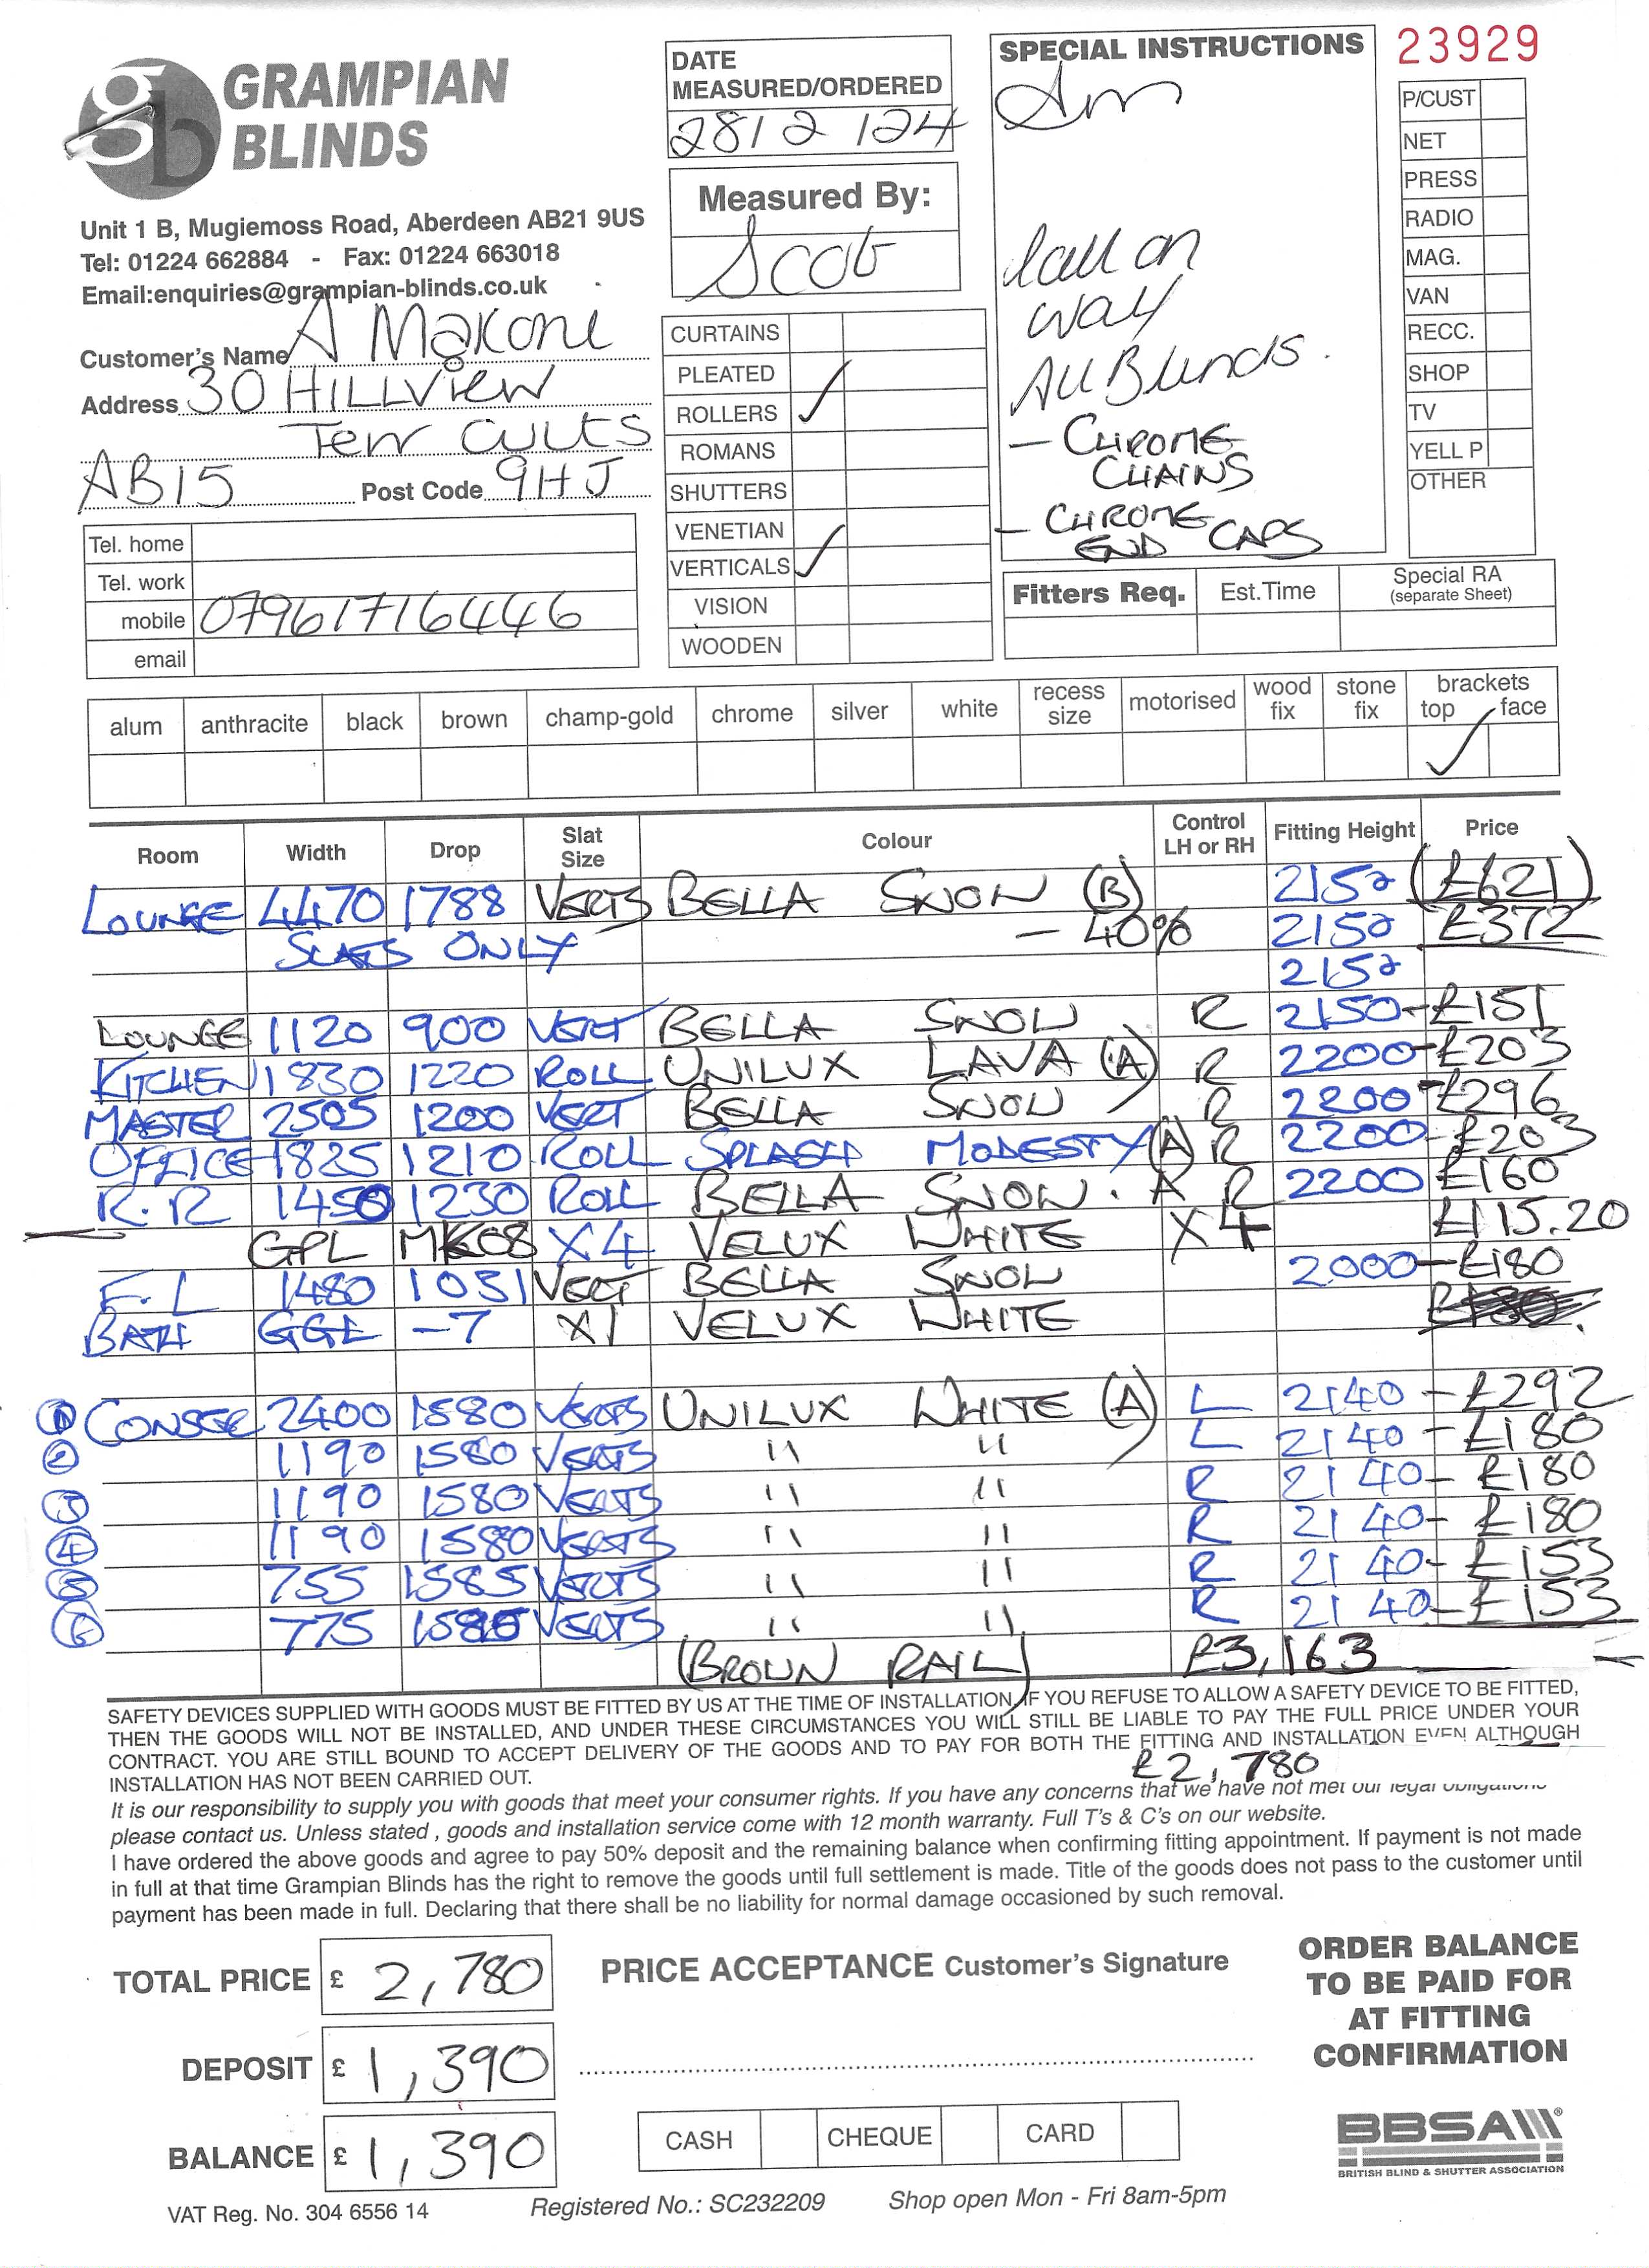 GRAMPIAN BLINDS
Unit 1 B, Mugiemoss Road, Aberdeen AB21 9US
Tel: 01224 662884 - Fax: 01224 663018
Email:enquiries@grampian-blinds.co.uk
Customer's Name A Makoni
Address 30 HILLVIEW
Terr CULTS
AB15 Post Code 9HJ
Tel. home
Tel. work
mobile 07961716446
email
DATE MEASURED/ORDERED
28/2/24
Measured By:
Scot
CURTAINS
PLEATED
ROLLERS ✓
ROMANS
SHUTTERS
VENETIAN
VERTICALS ✓
VISION
WOODEN
SPECIAL INSTRUCTIONS
Am
Call on
way
All Blinds.
- CHROME
CHAINS
- CHROME
END CAPS
23929
P/CUST
NET
PRESS
RADIO
MAG.
VAN
RECC.
SHOP
TV
YELL P
OTHER
Fitters Req. Est.Time Special RA (separate Sheet)
alum anthracite black brown champ-gold chrome silver white recess size motorised wood fix stone fix brackets top face
✓
Room Width Drop Slat Size Colour Control LH or RH Fitting Height Price
LOUNGE 4470 1788 VERTS BELLA SNOW (B) 2152 (£621)
SLATS ONLY - 40% 2152 £372
2152
LOUNGE 1120 900 VERT BELLA SNOW R 2150 - £151
KITCHEN 1830 1220 ROLL UNILUX LAVA (A) R 2200 - £203
MASTER 2505 1200 VERT BELLA SNOW R 2200 - £296
OFFICE 1825 1210 ROLL SPLASH MODESTY (A) R 2200 - £203
R.R 1450 1230 ROLL BELLA SNOW. A R 2200 £160
GPL MK08 X4 VELUX WHITE X4 £115.20
F.L 1480 1031 VERT BELLA SNOW 2000 - £180
BATH GGL -7 X1 VELUX WHITE
① CONSER 2400 1580 VERTS UNILUX WHITE (A) L 2140 - £292
② 1190 1580 VERTS '' '' L 2140 - £180
③ 1190 1580 VERTS '' '' R 2140 - £180
④ 1190 1580 VERTS '' '' R 2140 - £180
⑤ 755 1585 VERTS '' '' R 2140 - £153
⑥ 775 1585 VERTS '' '' R 2140 - £153
(BROWN RAIL) £3,163
SAFETY DEVICES SUPPLIED WITH GOODS MUST BE FITTED BY US AT THE TIME OF INSTALLATION, IF YOU REFUSE TO ALLOW A SAFETY DEVICE TO BE FITTED,
THEN THE GOODS WILL NOT BE INSTALLED, AND UNDER THESE CIRCUMSTANCES YOU WILL STILL BE LIABLE TO PAY THE FULL PRICE UNDER YOUR
CONTRACT. YOU ARE STILL BOUND TO ACCEPT DELIVERY OF THE GOODS AND TO PAY FOR BOTH THE FITTING AND INSTALLATION EVEN ALTHOUGH
INSTALLATION HAS NOT BEEN CARRIED OUT.
£2,780
It is our responsibility to supply you with goods that meet your consumer rights. If you have any concerns that we have not met our legal obligations
please contact us. Unless stated , goods and installation service come with 12 month warranty. Full T's & C's on our website.
I have ordered the above goods and agree to pay 50% deposit and the remaining balance when confirming fitting appointment. If payment is not made
in full at that time Grampian Blinds has the right to remove the goods until full settlement is made. Title of the goods does not pass to the customer until
payment has been made in full. Declaring that there shall be no liability for normal damage occasioned by such removal.
TOTAL PRICE £ 2,780
DEPOSIT £ 1,390
BALANCE £ 1,390
PRICE ACCEPTANCE Customer's Signature
CASH CHEQUE CARD
ORDER BALANCE
TO BE PAID FOR
AT FITTING
CONFIRMATION
BBSA
BRITISH BLIND & SHUTTER ASSOCIATION
VAT Reg. No. 304 6556 14 Registered No.: SC232209 Shop open Mon - Fri 8am-5pm